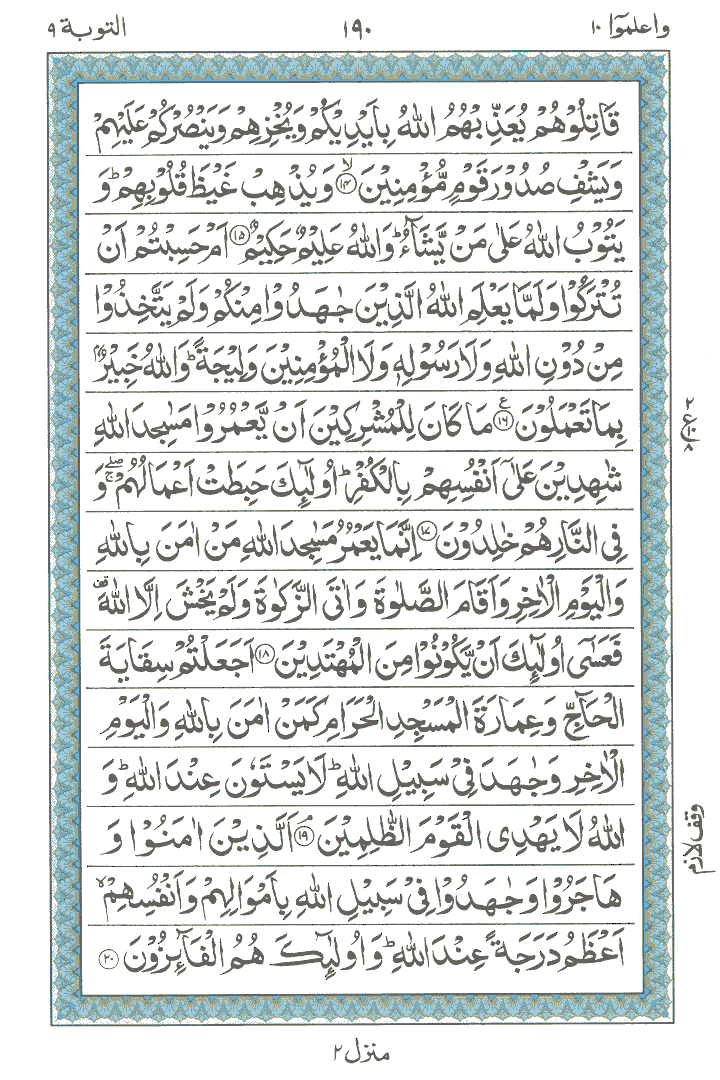 واعلموٓا ١٠
١٩٠
التوبة ٩
قَاتِلُوْهُمْ يُعَذِّبْهُمُ اللّٰهُ بِاَيْدِيْكُمْ وَيُخْزِهِمْ وَيَنْصُرْكُمْ عَلَيْهِمْ
وَيَشْفِ صُدُوْرَ قَوْمٍ مُّؤْمِنِيْنَ ۙ﴿۱۴﴾ وَيُذْهِبْ غَيْظَ قُلُوْبِهِمْ ؕ وَ
يَتُوْبُ اللّٰهُ عَلٰى مَنْ يَّشَآءُ ؕ وَاللّٰهُ عَلِيْمٌ حَكِيْمٌ ﴿۱۵﴾ اَمْ حَسِبْتُمْ اَنْ
تُتْرَكُوْا وَلَمَّا يَعْلَمِ اللّٰهُ الَّذِيْنَ جٰهَدُوْا مِنْكُمْ وَلَمْ يَتَّخِذُوْا
مِنْ دُوْنِ اللّٰهِ وَلَا رَسُوْلِهٖ وَلَا الْمُؤْمِنِيْنَ وَلِيْجَةً ؕ وَاللّٰهُ خَبِيْرٌۢ
بِمَا تَعْمَلُوْنَ ﴿۱۶﴾ۧ مَا كَانَ لِلْمُشْرِكِيْنَ اَنْ يَّعْمُرُوْا مَسٰجِدَ اللّٰهِ
شٰهِدِيْنَ عَلٰٓى اَنْفُسِهِمْ بِالْكُفْرِ ؕ اُولٰٓئِكَ حَبِطَتْ اَعْمَالُهُمْ ۖۚ وَ
فِى النَّارِ هُمْ خٰلِدُوْنَ ﴿۱۷﴾ اِنَّمَا يَعْمُرُ مَسٰجِدَ اللّٰهِ مَنْ اٰمَنَ بِاللّٰهِ
وَالْيَوْمِ الْاٰخِرِ وَاَقَامَ الصَّلٰوةَ وَاٰتَى الزَّكٰوةَ وَلَمْ يَخْشَ اِلَّا اللّٰهَ قف
فَعَسٰٓى اُولٰٓئِكَ اَنْ يَّكُوْنُوْا مِنَ الْمُهْتَدِيْنَ ﴿۱۸﴾ اَجَعَلْتُمْ سِقَايَةَ
الْحَآجِّ وَعِمَارَةَ الْمَسْجِدِ الْحَرَامِ كَمَنْ اٰمَنَ بِاللّٰهِ وَالْيَوْمِ
الْاٰخِرِ وَجٰهَدَ فِىْ سَبِيْلِ اللّٰهِ ؕ لَا يَسْتَوٗنَ عِنْدَ اللّٰهِ ؕ وَ
اللّٰهُ لَا يَهْدِى الْقَوْمَ الظّٰلِمِيْنَ ۘ﴿۱۹﴾ اَلَّذِيْنَ اٰمَنُوْا وَ
هَاجَرُوْا وَجٰهَدُوْا فِىْ سَبِيْلِ اللّٰهِ بِاَمْوَالِهِمْ وَاَنْفُسِهِمْ ۙ
اَعْظَمُ دَرَجَةً عِنْدَ اللّٰهِ ؕ وَاُولٰٓئِكَ هُمُ الْفَآئِزُوْنَ ﴿۲۰﴾
٢ ع ١٠ ٨
وقف لازم
منزل ٢